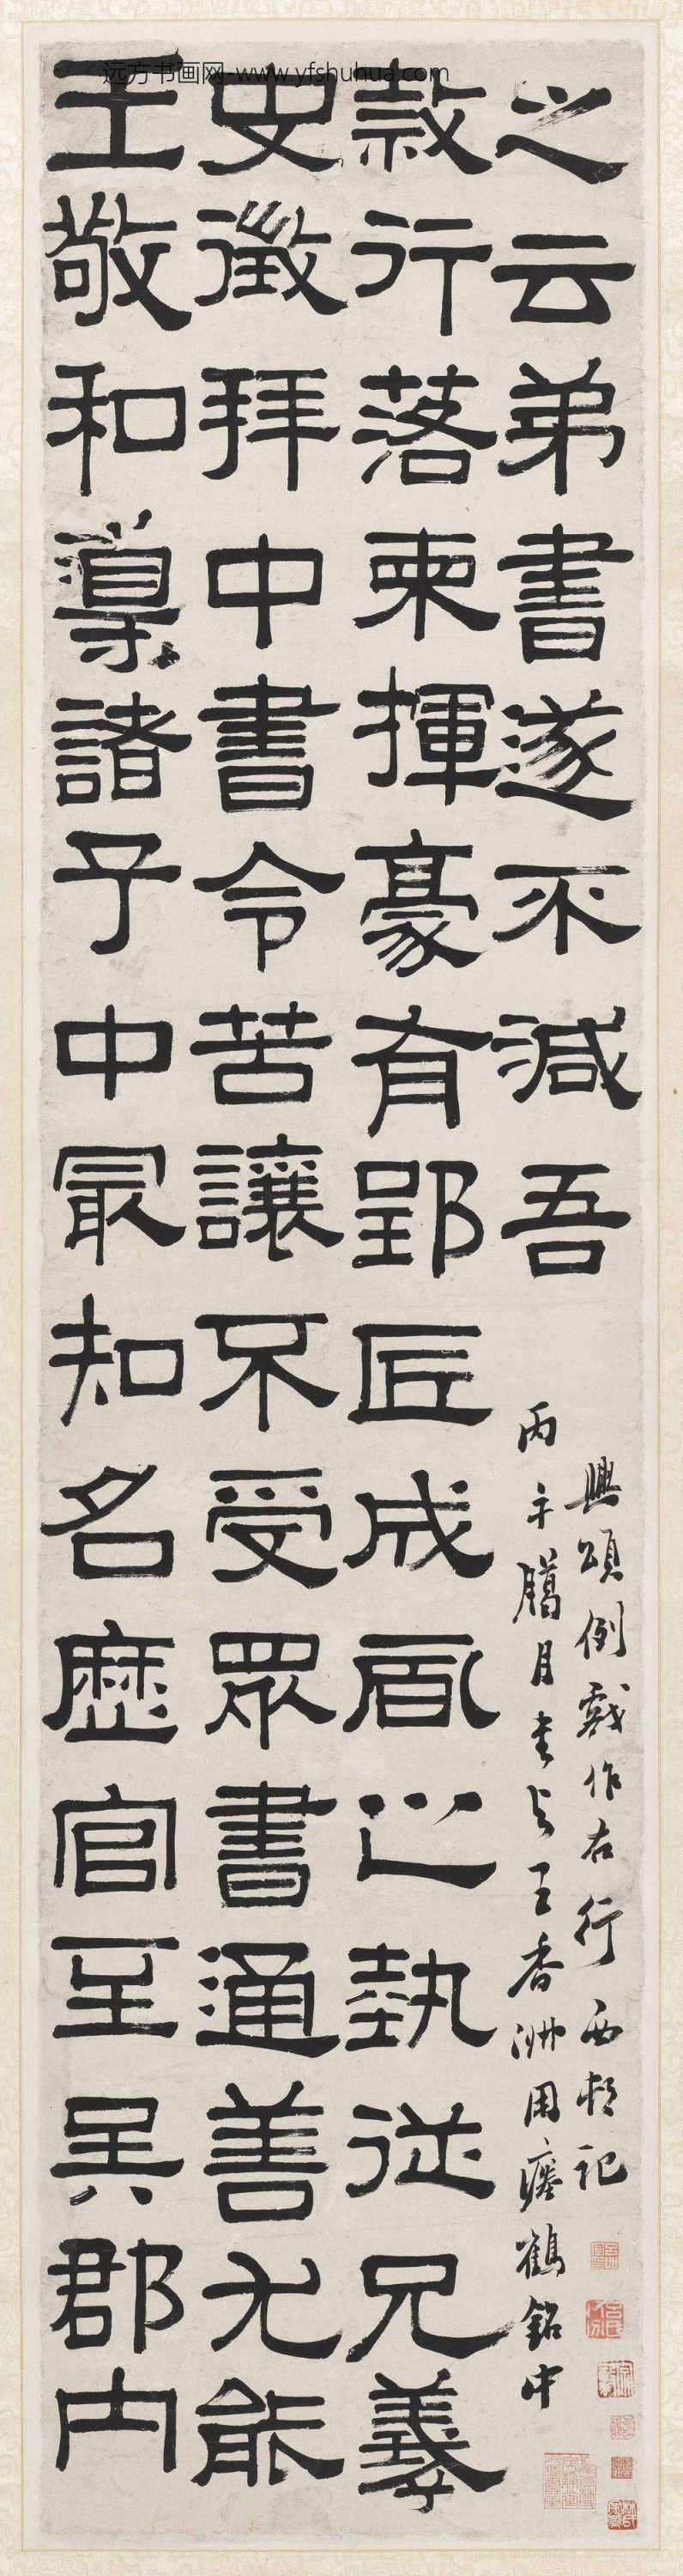 远方书画网-www.yfshuhua.com
王敬和導諸子中最知名歷官至吳郡内
史徵拜中書令苦讓不受眾書通善尤能
隸行落柬揮豪有郢匠成風之埶從兄羲
之云弟書遂不減吾
丙午臈月書與王香洲用瘞鶴銘中
興頌例戲作右行西邨記